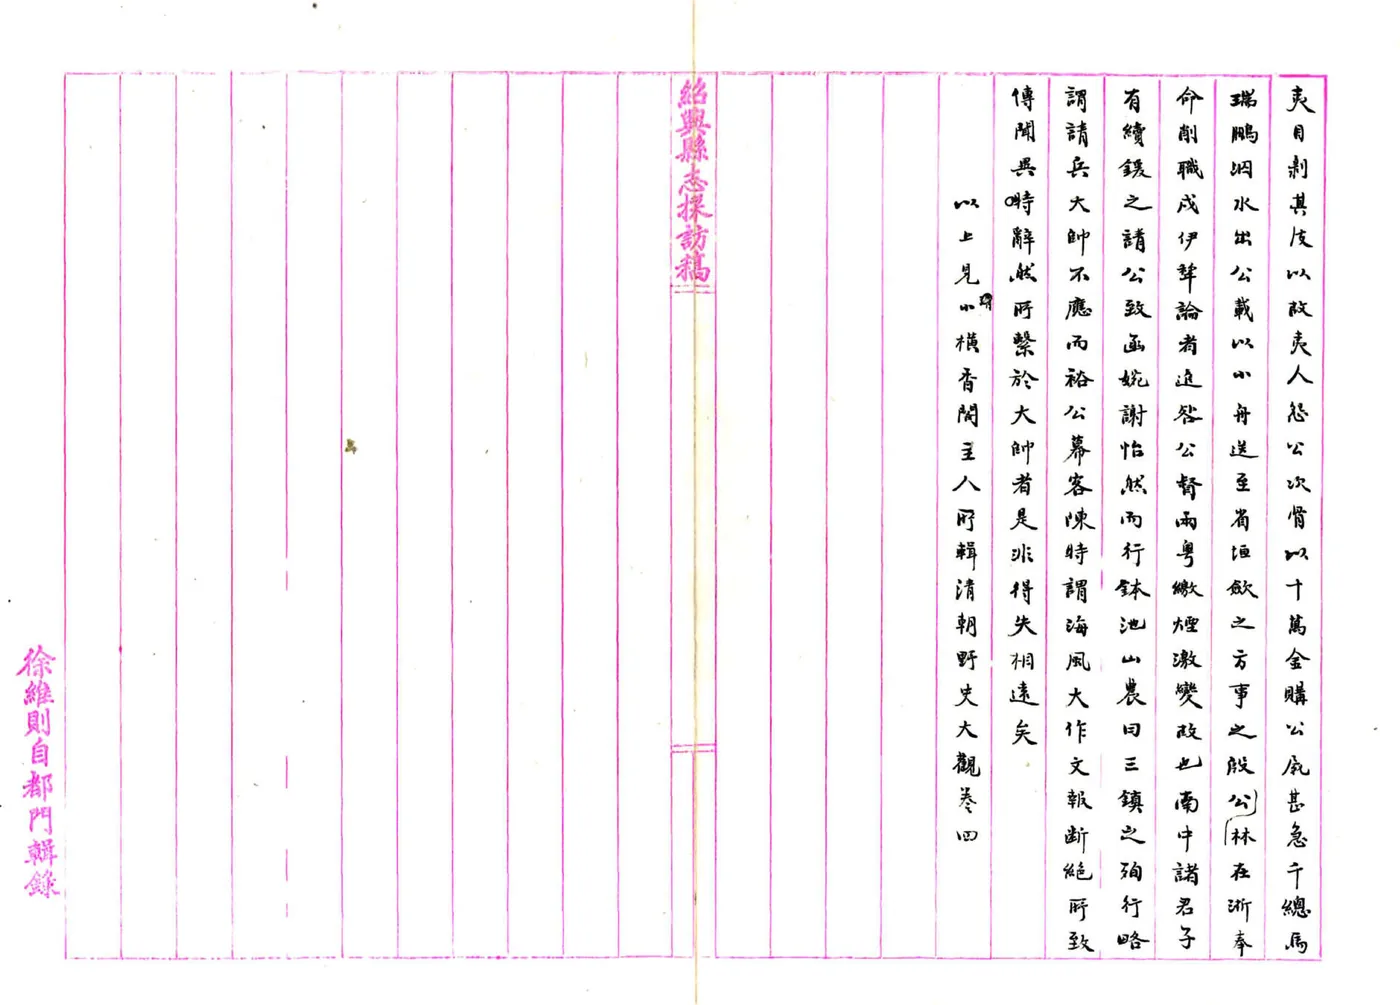 夷目剥其皮以故夷人怨公次骨以十萬金購公屍甚急千總馬
瑞鵬泅水出公載以小舟送至省垣歛之方事之殷公林在浙奉
命削職戍伊犂論者追咎公督兩粤繳煙激變故也南中諸君子
有續鍰之請公致函婉謝怡然而行鉢池山農曰三鎮之殉行略
謂請兵大帥不應而裕公幕客陳時謂海風大作文報断絶所致
傳聞異時辭然所繫於大帥者是非得失相遠矣
以上見小横香閣主人所輯清朝野史大觀卷四
紹興縣志採訪稿
徐維則自都門輯錄